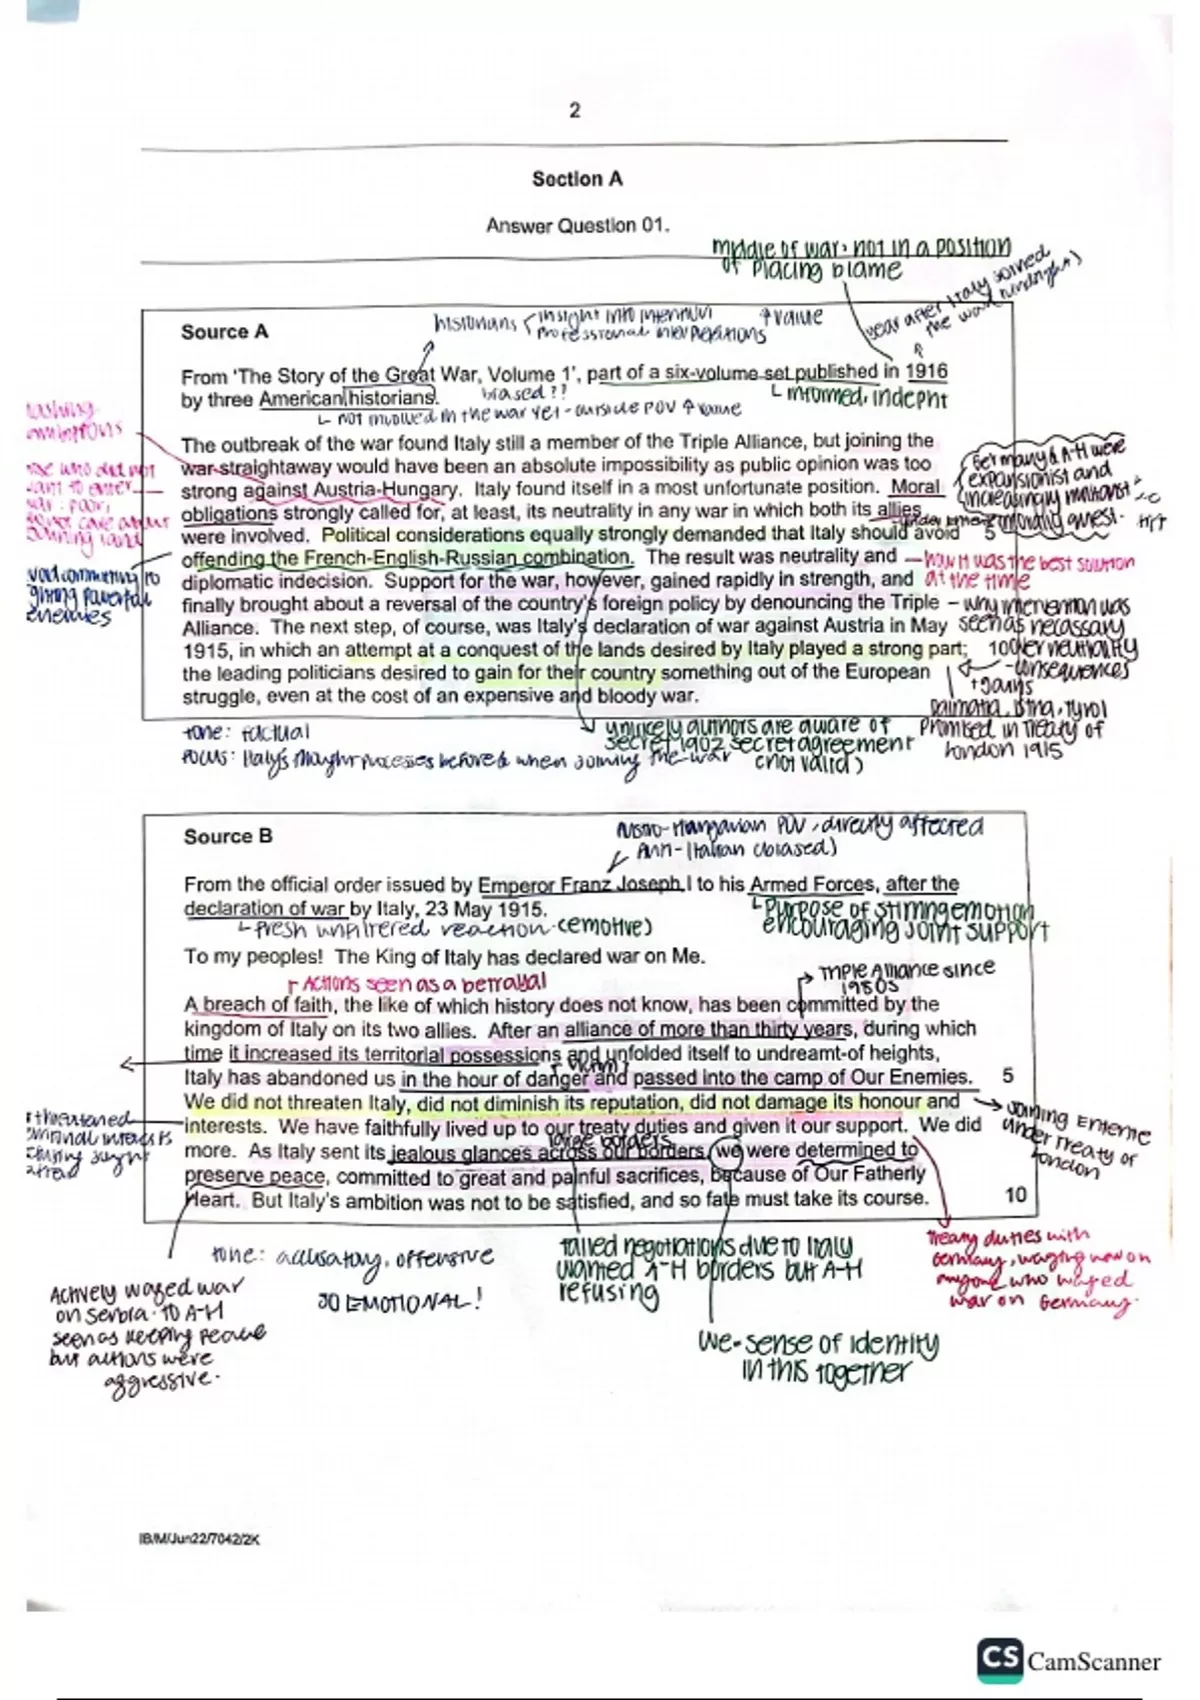 2
Section A
Answer Question 01.
middle of war, not in a position
of placing blame
year after Italy joined
the war (hindsight)
Source A
historians insight into
professional interpretations
↑ value
From 'The Story of the Great War, Volume 1', part of a six-volume set published in 1916
by three American historians.
biased??
informed, indepnt
not involved in the war yet - outside POV ↑ value
The outbreak of the war found Italy still a member of the Triple Alliance, but joining the
war straightaway would have been an absolute impossibility as public opinion was too
strong against Austria-Hungary. Italy found itself in a most unfortunate position. Moral
obligations strongly called for, at least, its neutrality in any war in which both its allies
were involved. Political considerations equally strongly demanded that Italy should avoid 5
offending the French-English-Russian combination. The result was neutrality and
diplomatic indecision. Support for the war, however, gained rapidly in strength, and
finally brought about a reversal of the country's foreign policy by denouncing the Triple
Alliance. The next step, of course, was Italy's declaration of war against Austria in May
1915, in which an attempt at a conquest of the lands desired by Italy played a strong part; 10
the leading politicians desired to gain for their country something out of the European
struggle, even at the cost of an expensive and bloody war.
who did not
want to enter
war: poor,
do not care about
land
giving powerful
enemies
Germany & A-H were
expansionist and
increasingly militarist
how it was the best solution
at the time
- why intervention was
seen as necassary
over neutrality
- consequences
+ gains
Dalmatia, Istria, Tyrol
promised in Treaty of
London 1915
tone: factual
focus: Italy's thought processes before & when joining the war
unlikely authors are aware of
secret 1902 secret agreement
(not valid)
Source B
Austro-Hungarian POV, directly affected
Anti-Italian (biased)
From the official order issued by Emperor Franz Joseph I to his Armed Forces, after the
declaration of war by Italy, 23 May 1915.
fresh unfiltered reaction (emotive)
purpose of stirring emotion
encouraging joint support
To my peoples! The King of Italy has declared war on Me.
Actions seen as a betrayal
Triple Alliance since
1980s
A breach of faith, the like of which history does not know, has been committed by the
kingdom of Italy on its two allies. After an alliance of more than thirty years, during which
time it increased its territorial possessions and unfolded itself to undreamt-of heights,
Italy has abandoned us in the hour of danger and passed into the camp of Our Enemies. 5
We did not threaten Italy, did not diminish its reputation, did not damage its honour and
interests. We have faithfully lived up to our treaty duties and given it our support. We did
more. As Italy sent its jealous glances across our borders, we were determined to
preserve peace, committed to great and painful sacrifices, because of Our Fatherly
Heart. But Italy's ambition was not to be satisfied, and so fate must take its course. 10
large borders
joining Entente
under Treaty of
London
threatened
tone: accusatory, offensive
SO EMOTIONAL!
Actively waged war
on Serbia. To A-H
seen as keeping peace
but actions were
aggressive.
failed negotiations due to Italy
wanted A-H borders but A-H
refusing
we - sense of identity
in this together
Treaty duties with
Germany, waging war on
anyone who waged
war on Germany.
IB/M/Jun22/7042/2K
CS CamScanner